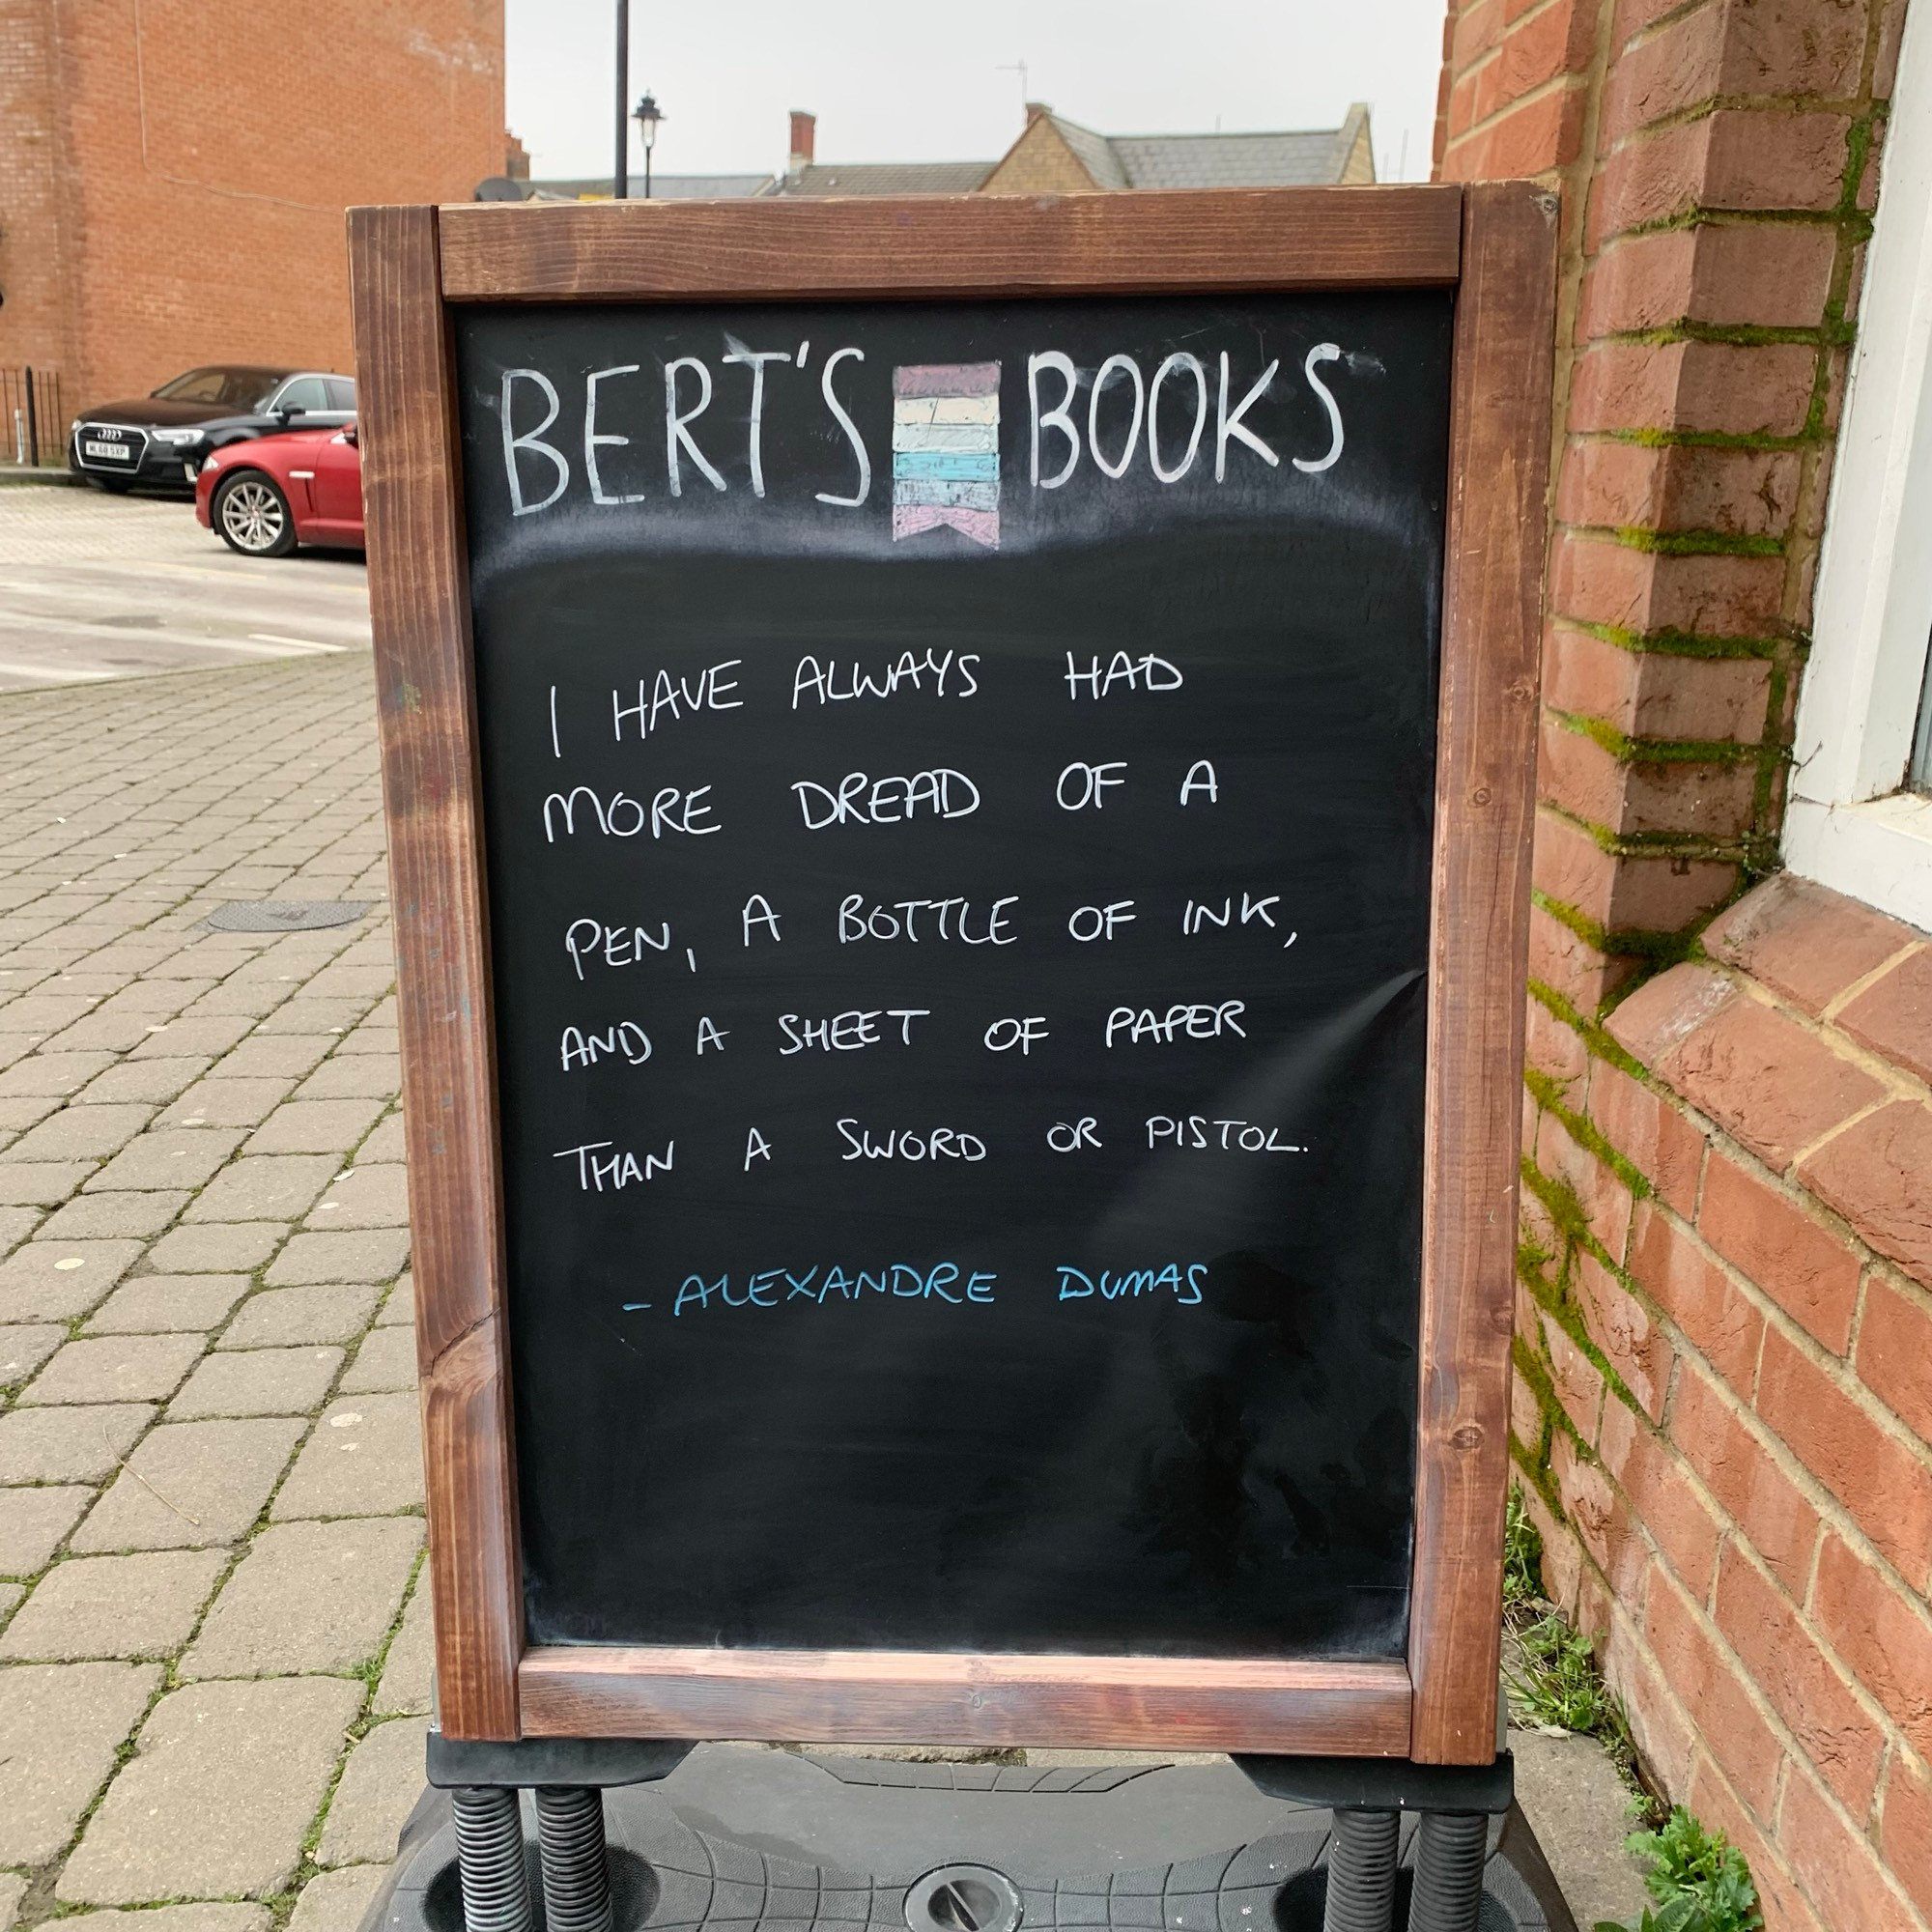 BERT'S BOOKS
I HAVE ALWAYS HAD
MORE DREAD OF A
PEN, A BOTTLE OF INK,
AND A SHEET OF PAPER
THAN A SWORD OR PISTOL.
- ALEXANDRE DUMAS